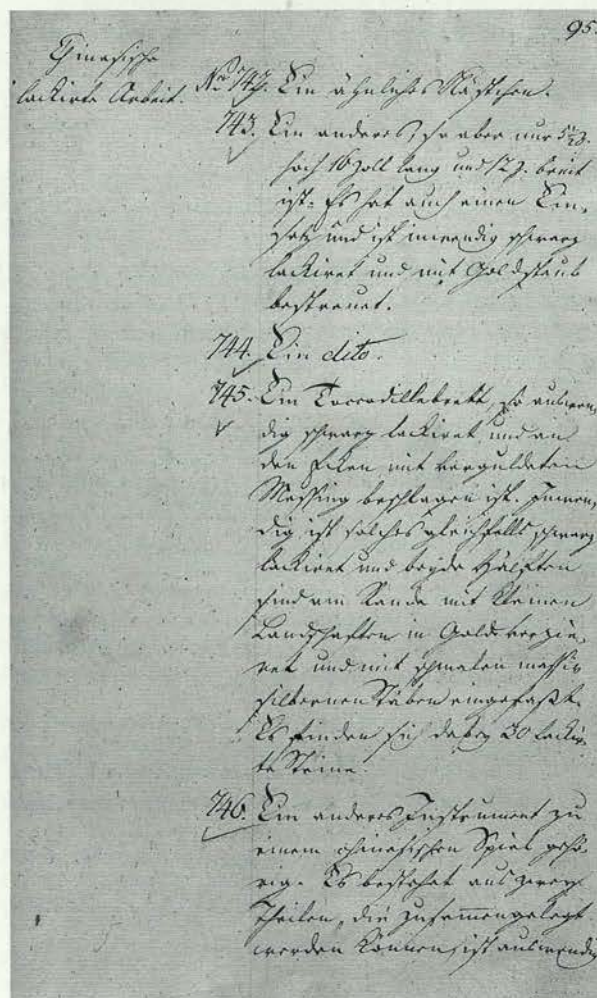 95.
Chinesische
lackirte Arbeit.
No 742. Ein ähnliches Kästchen.
743. Ein anderes, so aber nur 5 1/2 Z.
hoch 16 Zoll lang und 12 Z. breit
ist. Es hat auch einen Ein-
satz und ist inwendig schwarz
lackiret und mit Goldstaub
bestreuet.
744. Ein dito.
745. Ein Toccadillebrett, so auswen-
dig schwarz lackiret und an
den Ecken mit verguldeten
Messing beschlagen ist. Inwen-
dig ist solches gleichfalls schwarz
lackiret und beyde Hälften
sind am Rande mit kleinen
Landschaften in Golde verzie-
ret und mit schmalen massiv
silbernen Stäben eingefaßt.
Es finden sich dabey 30 lackir-
te Steine.
746. Ein anderes Instrument zu
einem chinesischen Spiel gehö-
rig. Es bestehet aus zwey
Theilen, die zusammengelegt
werden können, ist auswendig